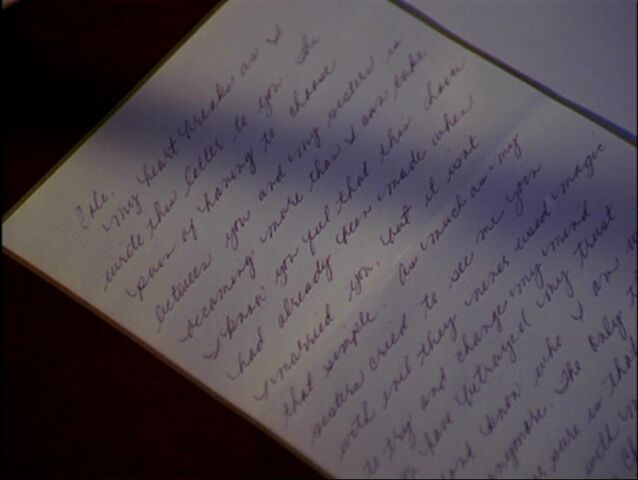 Cole,
My heart breaks as I
write this letter to you. The
pain of having to choose
between you and my sisters is
becoming more than I can take
I know you feel that this choice
had already been made when
I married you, but it isnt
that simple. As much as my
sisters cried to see me join
with evil they never used magic
to try and change my mind
have betrayed my trust
know who I am
anymore. The only
sure is that
with